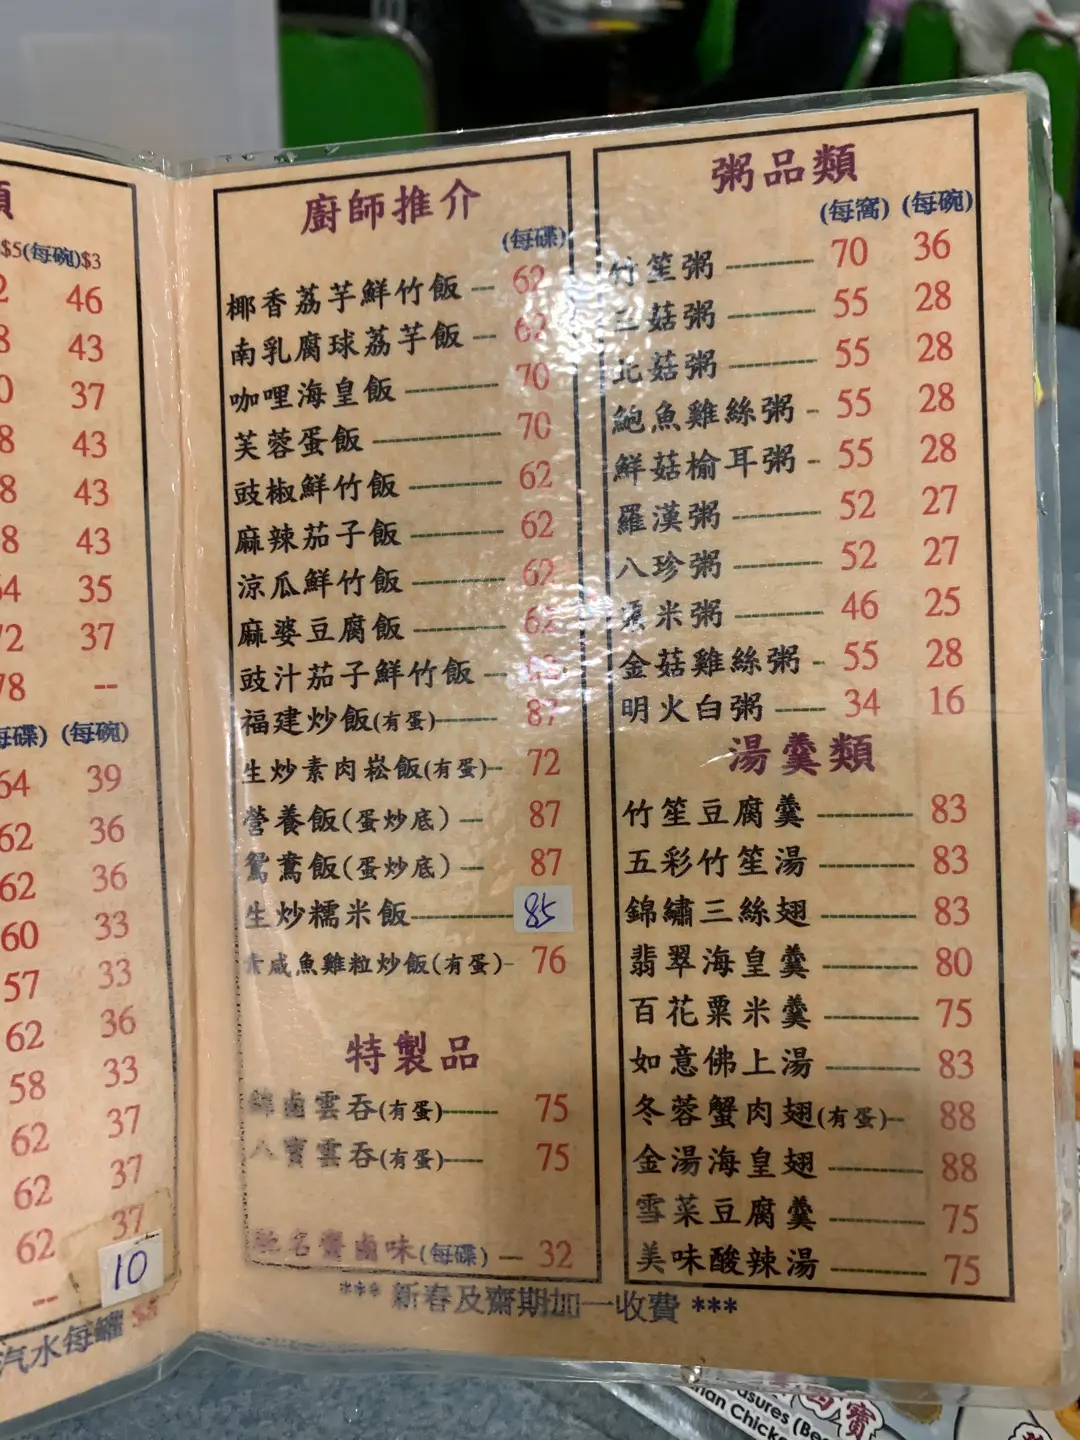 $5(每碗)$3
46
43
37
43
43
43
35
72 37
78 --
(每碟) (每碗)
64 39
62 36
62 36
60 33
57 33
62 36
58 33
62 37
62 37
62 37
-- 10
汽水每罐
廚師推介
(每碟)
椰香荔芋鮮竹飯 -- 62
南乳腐球荔芋飯 -- 62
咖哩海皇飯 -------- 70
芙蓉蛋飯 ---------- 70
豉椒鮮竹飯 -------- 62
麻辣茄子飯 -------- 62
涼瓜鮮竹飯 -------- 62
麻婆豆腐飯 -------- 62
豉汁茄子鮮竹飯 --
福建炒飯(有蛋)----- 87
生炒素肉崧飯(有蛋)-- 72
營養飯(蛋炒底) -- 87
鴛鴦飯(蛋炒底) -- 87
生炒糯米飯----------- 85
素咸魚雞粒炒飯(有蛋)- 76
特製品
錦鹵雲吞(有蛋)----- 75
八寶雲吞(有蛋)---- 75
馳名齋鹵味(每碟) -- 32
粥品類
(每窩) (每碗)
竹笙粥 -------- 70 36
三菇粥 -------- 55 28
北菇粥 -------- 55 28
鮑魚雞絲粥 - 55 28
鮮菇榆耳粥 - 55 28
羅漢粥 -------- 52 27
八珍粥 -------- 52 27
米粥 -------- 46 25
金菇雞絲粥 - 55 28
明火白粥 ----- 34 16
湯羹類
竹笙豆腐羹 -------- 83
五彩竹笙湯 -------- 83
錦繡三絲翅 -------- 83
翡翠海皇羹 -------- 80
百花粟米羹 -------- 75
如意佛上湯 -------- 83
冬蓉蟹肉翅(有蛋)-- 88
金湯海皇翅 -------- 88
雪菜豆腐羹 -------- 75
美味酸辣湯 -------- 75
*** 新春及齋期加一收費 ***